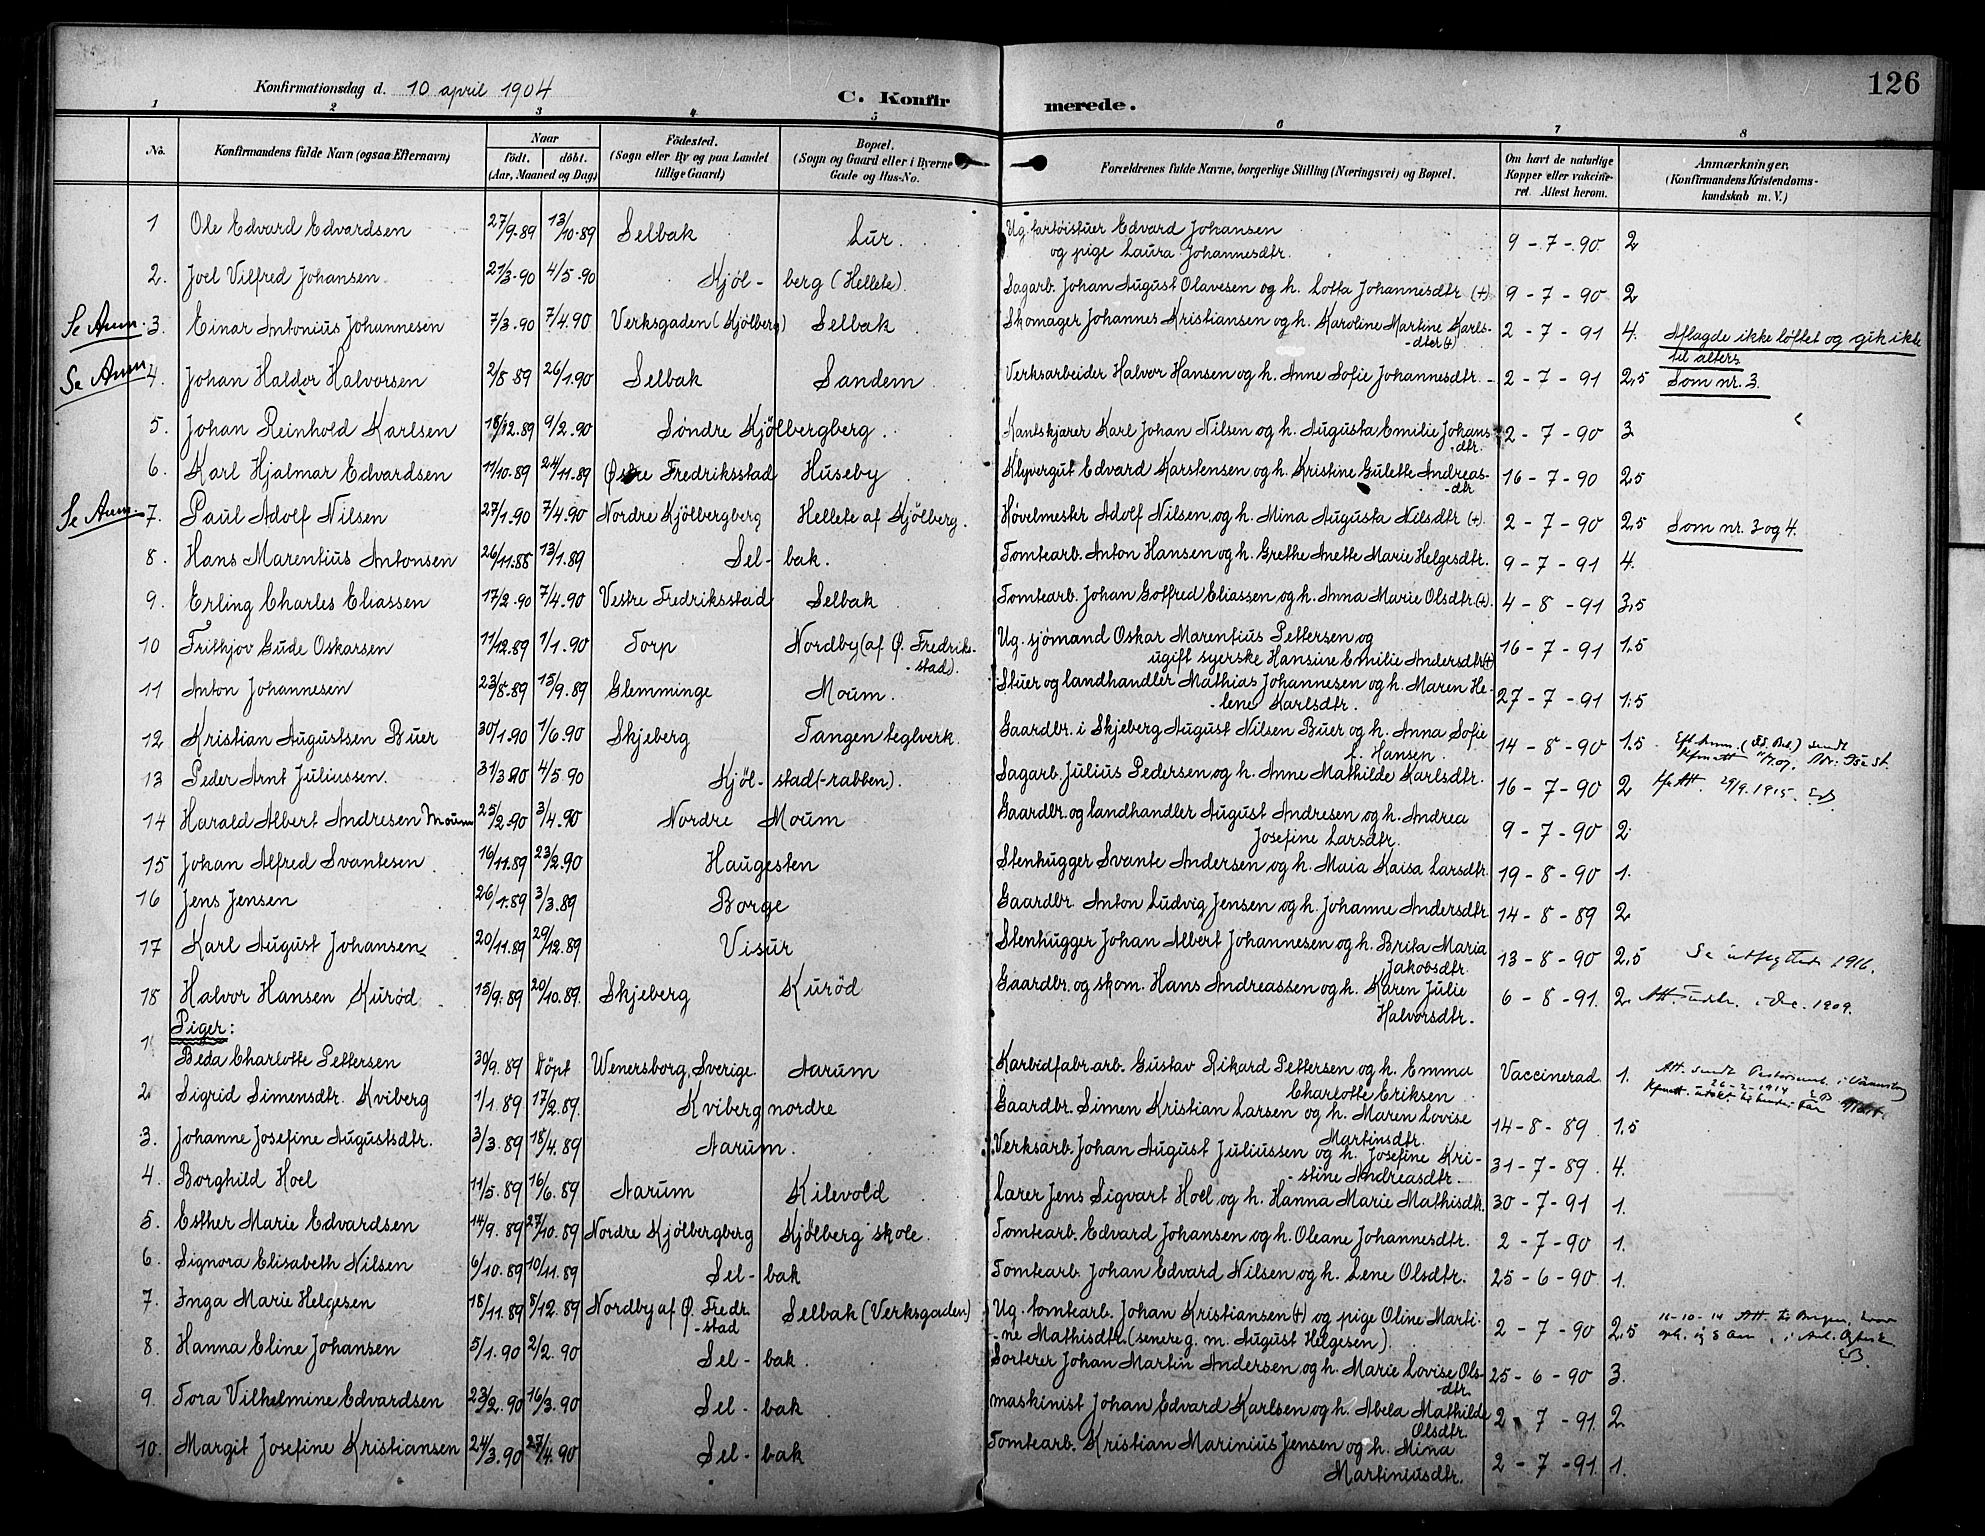 126
Konfirmationsdag d. 10 april 1904
C. Konfirmerede.
1 2 3 4 5 6 7 8
No.
Konfirmandens fulde Navn (ogsaa Efternavn)
Naar
födt. döbt.
(Aar, Maaned og Dag)
Födested.
(Sogn eller By og paa Landet
tillige Gaard)
Bopæl.
(Sogn og Gaard eller i Byerne
Gade og Hus-No.
Forældrenes fulde Navne, borgerlige Stilling (Næringsvei) og Bopæl.
Om havt de naturlige
Kopper eller vakcine-
ret. Attest herom.
Anmærkninger.
(Konfirmandens Kristendoms-
kundskab m. V.)
1 Ole Edvard Edvardsen 27/9-89 13/10-89 Selbak Lur. Ug. fartöistuer Edvard Johansen
og pige Laura Johannesdtr. 9-7-90 2
2. Joel Vilfred Johansen 21/3.90 4/5.90 Kjöl- berg (Hellete). Sagarb. Johan August Olavesen og h. Lotta Johannesdtr (+) 9-7-90 2
Se Anm. 3. Einar Antonius Johannesen 7/3.90 7/4.90 Verksgaden (Kjölberg) Selbak Skomager Johannes Kristiansen og h. Karoline Martine Karls-
dter (+) 2-7-91 4. Aflagde ikke löftet og gik ikke
til alters
Se Anm 4. Johan Haldor Halvorsen 2/8 89 26/1.90 Selbak Sandem Verksarbeider Halvor Hansen og h. Anne Sofie Johannesdtr. 2-7-91 2,5 Som nr. 3.
5. Johan Reinhold Karlsen 18/12.89 9/2.90 Söndre Kjölbergberg. Kantskjærer Karl Johan Nilsen og h. Augusta Emilie Johans-
dtr. 2-7-90 3
6. Karl Hjalmar Edvardsen 11/10.89 24/11.89 Østre Fredriksstad Huseby Klyvergut Edvard Karstensen og h. Kristine Gulette Andreas-
dtr 16-7-90 2,5
Se Anm. 7. Paul Adolf Nilsen 27/1.90 7/4.90 Nordre Kjölbergberg Hellete af Kjölberg. Hövelmester Adolf Nilsen og h. Mina Augusta Nilsdtr (+). 2-7-90 2,5 Som nr. 3 og 4.
8. Hans Marentius Antonsen 26/11.88 13/1.89 Sel- bak. Tomtearb. Anton Hansen og h. Grethe Anette Marie Helgesdtr. 9-7-91 4.
9. Erling Charles Eliassen 17/2.90 7/4.90 Vestre Fredriksstad Selbak Tomtearb. Johan Gotfred Eliassen og h. Anna Marie Olsdtr. (+). 4-8-91 3,5
10 Frithjov Gude Oskarsen 11/12.89 1/1.90 Torp Nordby (af Ø. Fredrik-
stad). Ug. sjömand Oskar Marentius Pettersen og
ugift syerske Hansine Emilie Andersdtr (+) 16-7-91 1,5
11 Anton Johannesen 23/8.89 15/9.89 Glemminge Moum. Stuer og landhandler Mathias Johannesen og h. Maren He-
lene Karlsdtr. 27-7-91 1,5
12 Kristian Augustsen Buer 30/1.90 1/6.90 Skjeberg Tangen teglverk. Gaardbr. i Skjeberg August Nilsen Buer og h. Anna Sofie
f. Hansen. 14-8-90 1,5
13 Peder Arnt Juliussen. 31/3.90 4/5 90 Kjöl- stad (-rabben). Sagarb. Julius Pedersen og h. Anne Mathilde Karlsdtr. 16-7-90 2 29/9.1915.
14 Harald Albert Andresen Moum 25/2.90 3/4.90 Nordre Moum Gaardbr. og landhandler August Andresen og h. Andrea
Josefine Larsdtr. 9-7-90 2
15 Johan Alfred Svantesen 16/11.89 23/2.90 Haugesten Stenhugger Svante Andersen og h. Maia Kaisa Larsdtr. 19-8-90 1.
16 Jens Jensen 26/1.89 3/3.89 Borge Gaardbr. Anton Ludvig Jensen og h. Johanne Andersdtr. 14-8-89 2
17 Karl August Johansen 20/11.89 29/12.89 Visur Stenhugger Johan Albert Johannesen og h. Brita Maria
Jakobsdtr. 13-8-90 2,5 Se utflyttede 1916.
18 Halvor Hansen Kuröd 15/9.89 20/10.89. Skjeberg Kuröd Gaardbr. og skom. Hans Andreassen og h. Karen Julie
Halvorsdtr. 6-8-91. 2. Att. i Dec. 1909.
Piger:
1 Beda Charlotte Pettersen 30/9.89 Döpt Wenersborg, Sverige. Aarum Karbidfabr.arb. Gustav Rikard Pettersen og h. Emma
Charlotte Eriksen Vaccinerad 1. Att. sendt
26-2-1914
2. Sigrid Simensdtr. Kviberg 1/1.89 17/2.89. Kviberg nordre Gaardbr. Simen Kristian Larsen og h. Maren Lovise
Martinsdtr. 14-8-89 1,5
3. Johanne Josefine Augustsdtr. 3/3.89 18/4.89 Aarum. Verksarb. Johan August Juliussen og h. Josefine Kri-
stine Andreasdtr. 31-7-89. 4.
4 Borghild Hoel 11/5.89 16/6.89 Aarum Kilevold Lærer Jens Sigvart Hoel og h. Hanna Marie Mathisdtr. 30-7-91 1.
5. Esther Marie Edvardsen 14/9.89 27/10.89 Nordre Kjölbergberg Kjölberg skole. Tomtearb. Edvard Johansen og h. Oleane Johannesdtr. 2-7-90 1.
6. Signora Elisabeth Nilsen 6/10.89 10/11.89 Sel- bak Tomtearb. Johan Edvard Nilsen og h. Lene Olsdtr. 25-6-90 1.
7. Inga Marie Helgesen 18/11.89 8/12.89 Nordby af Ø. Fredr.
-stad Selbak (Verksgaden) Ug. tomtearb. Johan Kristiansen (+) og pige Oline Marti-
ne Mathisdtr. (senere g. m. August Helgesen). 2-7-90 2,5
8. Hanna Eline Johansen 5/1.90 2/2.90 Sel- bak. Sorterer Johan Martin Andersen og h. Marie Lovise Ols-
dtr. 25-6-90 3.
9. Tora Vilhelmine Edvardsen 23/2.90 16/3.90 Sel- bak maskinist Johan Edvard Karlsen og h. Abela Mathilde
Olsdtr. 2-7-91. 2
10. Margit Josefine Kristiansen 24/3.90 27/4.90 Sel- bak Tomtearb. Kristian Marinius Jensen og h. Mina
Martiniusdtr. 2-7-91. 1.